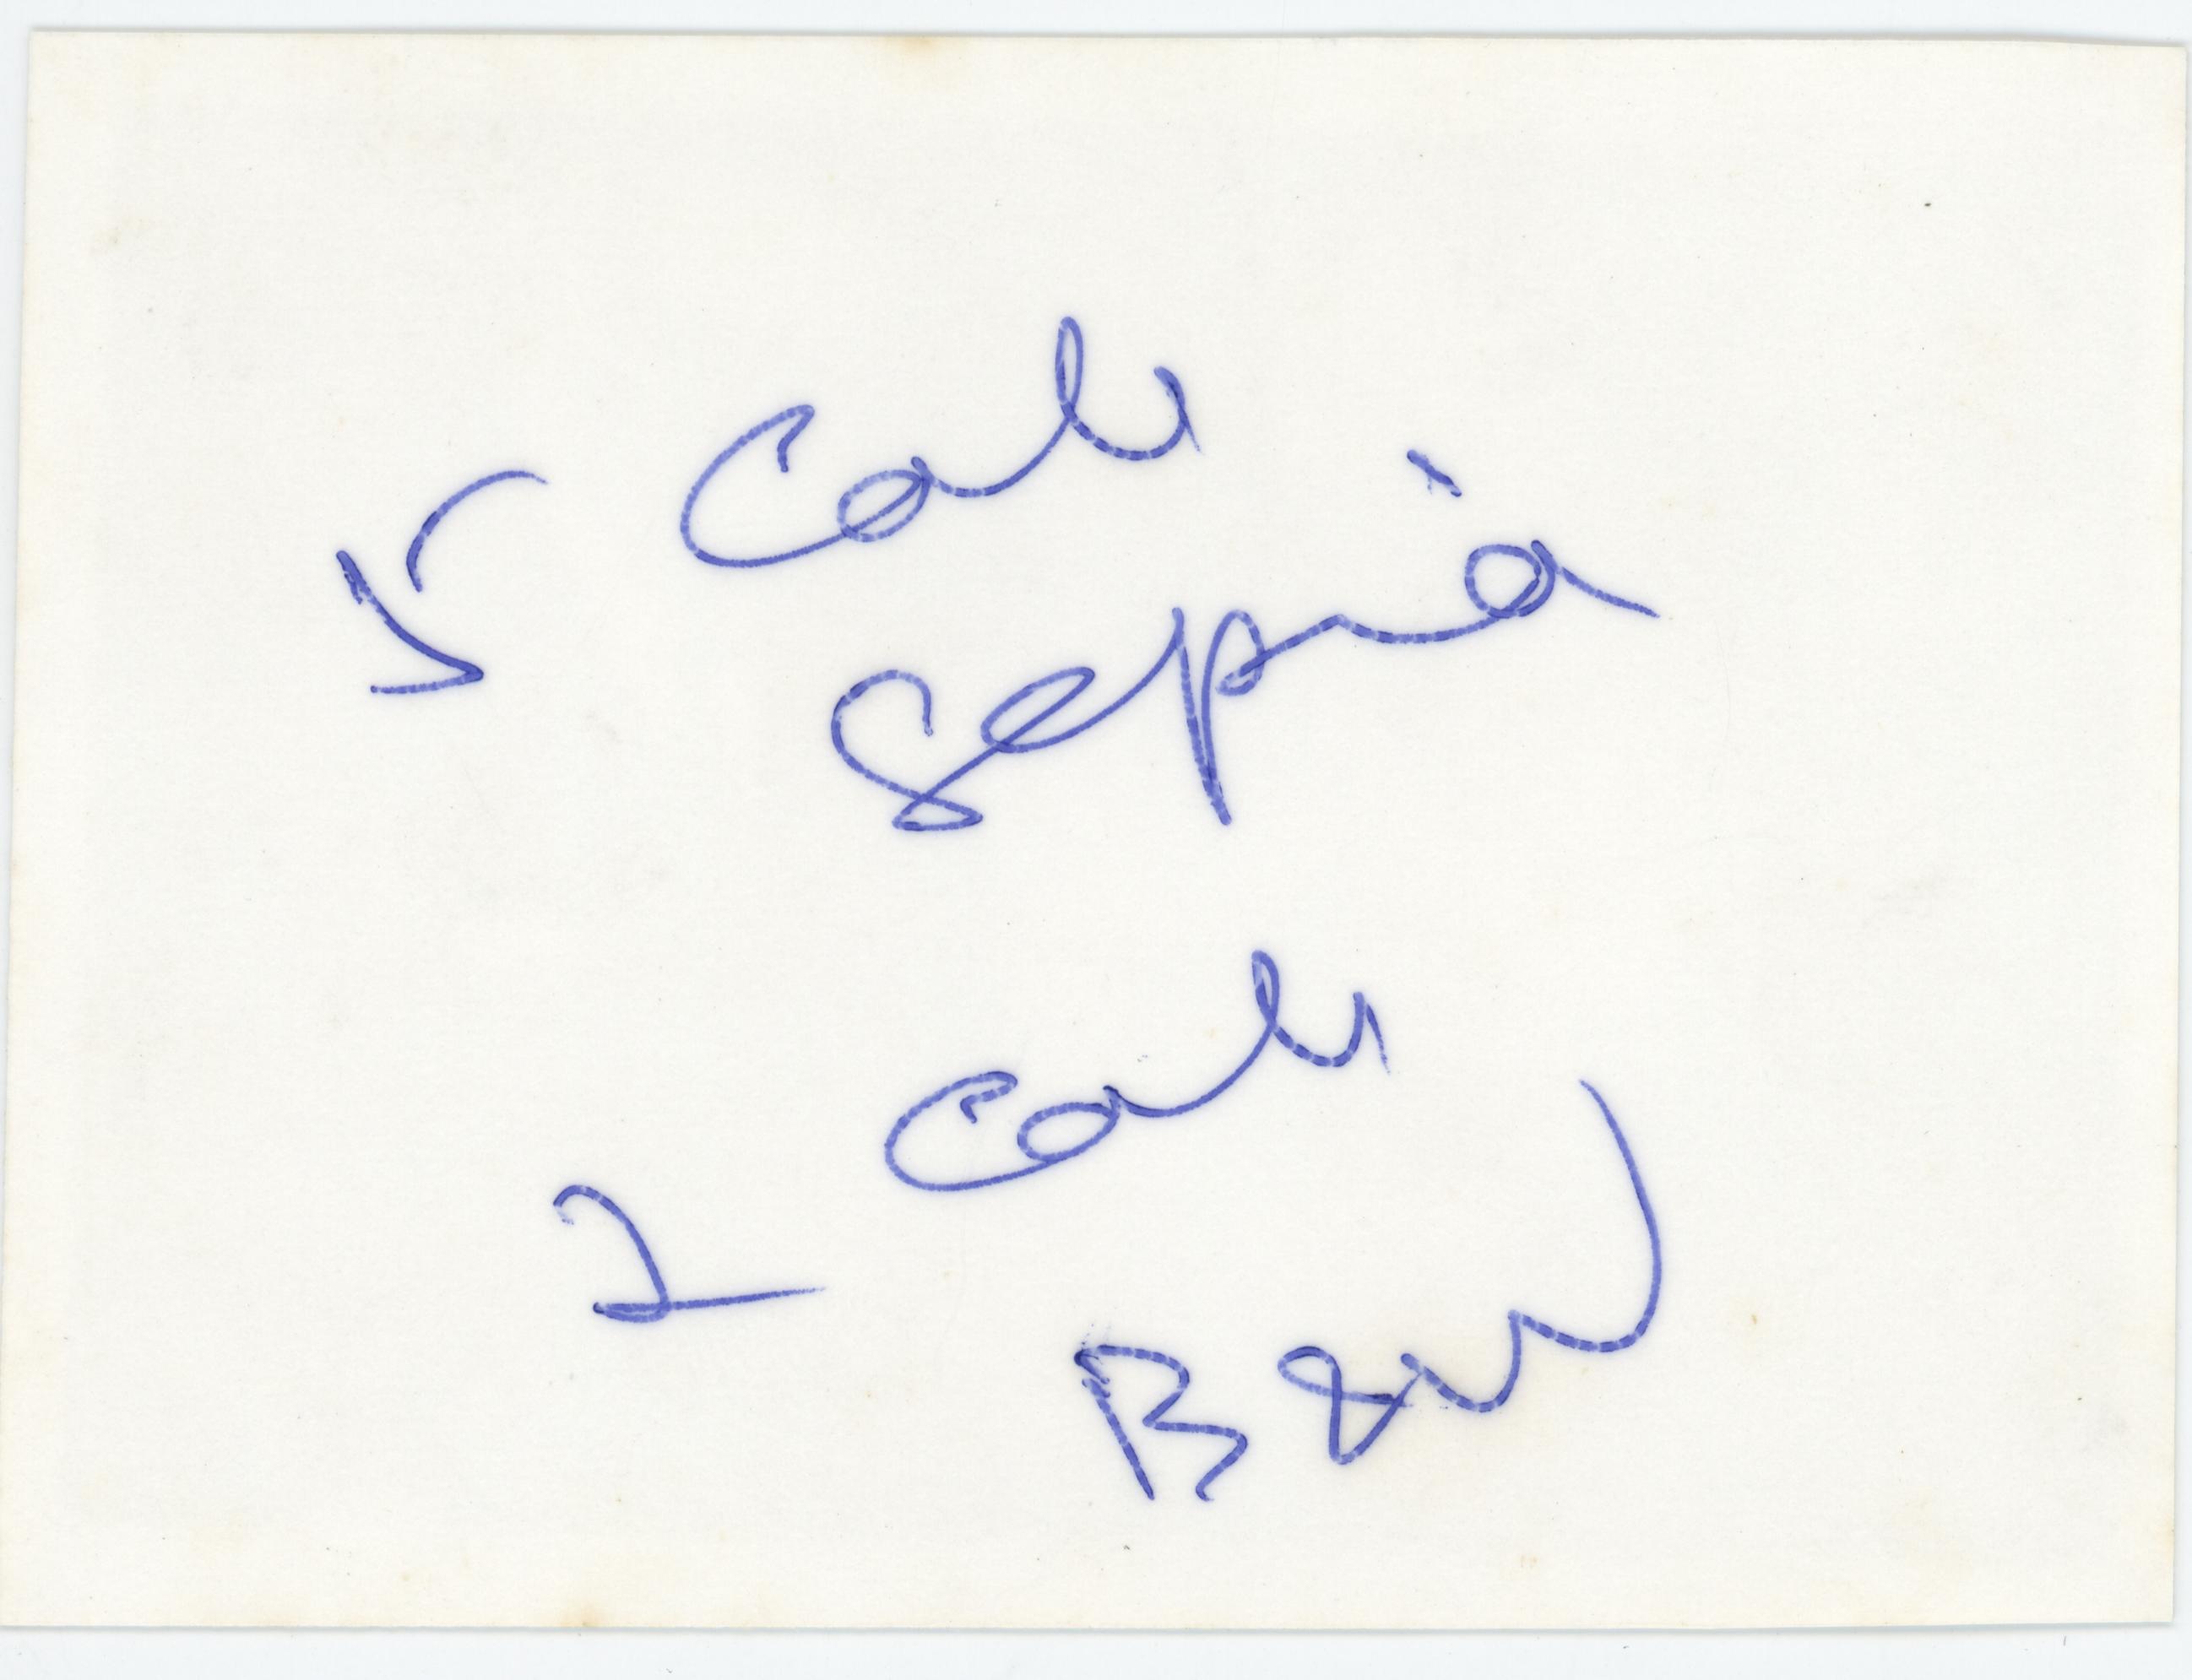 5 Cab
Sepia
2 Cab
B&W